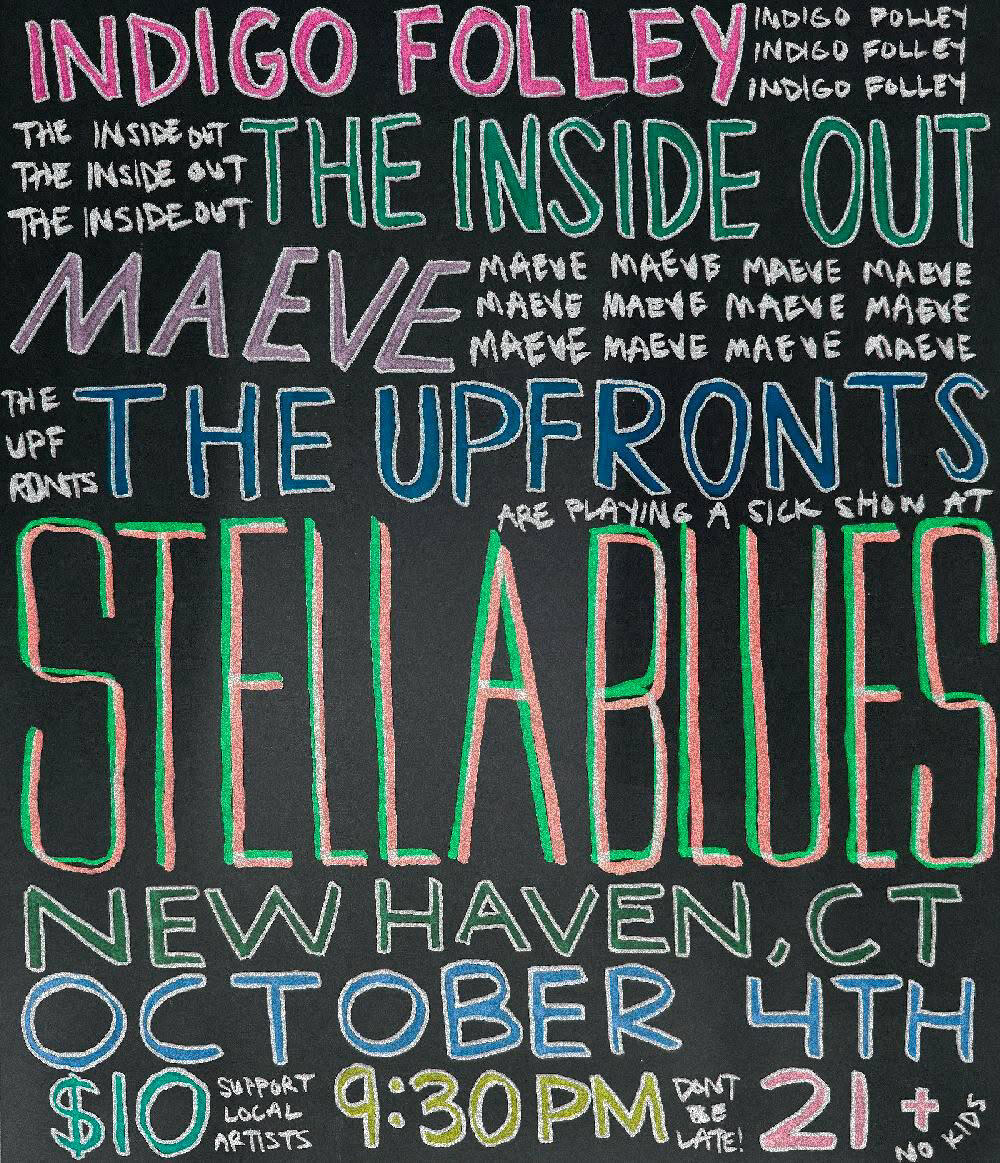 INDIGO FOLLEY
INDIGO FOLLEY
INDIGO FOLLEY
INDIGO FOLLEY
THE INSIDE OUT
THE INSIDE OUT
THE INSIDE OUT
THE INSIDE OUT
MAEVE
MAEVE MAEVE MAEVE MAEVE
MAEVE MAEVE MAEVE MAEVE
MAEVE MAEVE MAEVE MAEVE
THE
UPF
RONTS
THE UPFRONTS
ARE PLAYING A SICK SHOW AT
STELLABLUES
NEW HAVEN, CT
OCTOBER 4TH
$10
SUPPORT
LOCAL
ARTISTS
9:30PM
DONT
BE
LATE!
21+
NO KIDS